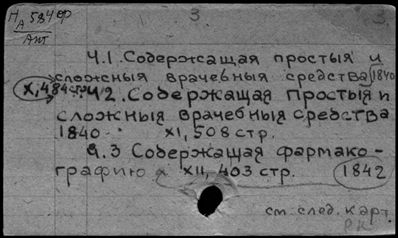 НА 584 ср
Ант
3
3.
Ч.1. Содержсащая простыя и
сложныя врачебныя средства 1840
X, 484 стр. Ч 2. Содержащая простыя и
сложныя врачебныя средства
1840 XI, 508 стр.
Ч.3 Содержащая фармако-
графию XII, 403 стр. 1842
см. след. карт.
РК